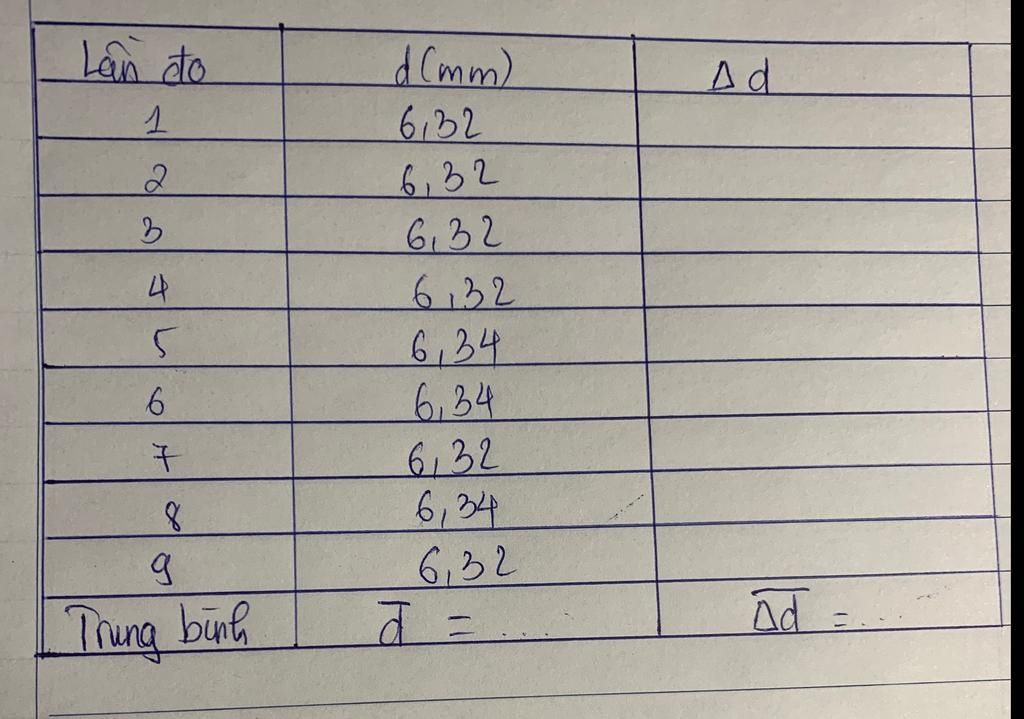 Lần đo d(mm) Δd
1 6,32
2 6,32
3 6,32
4 6,32
5 6,34
6 6,34
7 6,32
8 6,34
9 6,32
Trung bình d̅ = .... Δ̅d̅ = ....